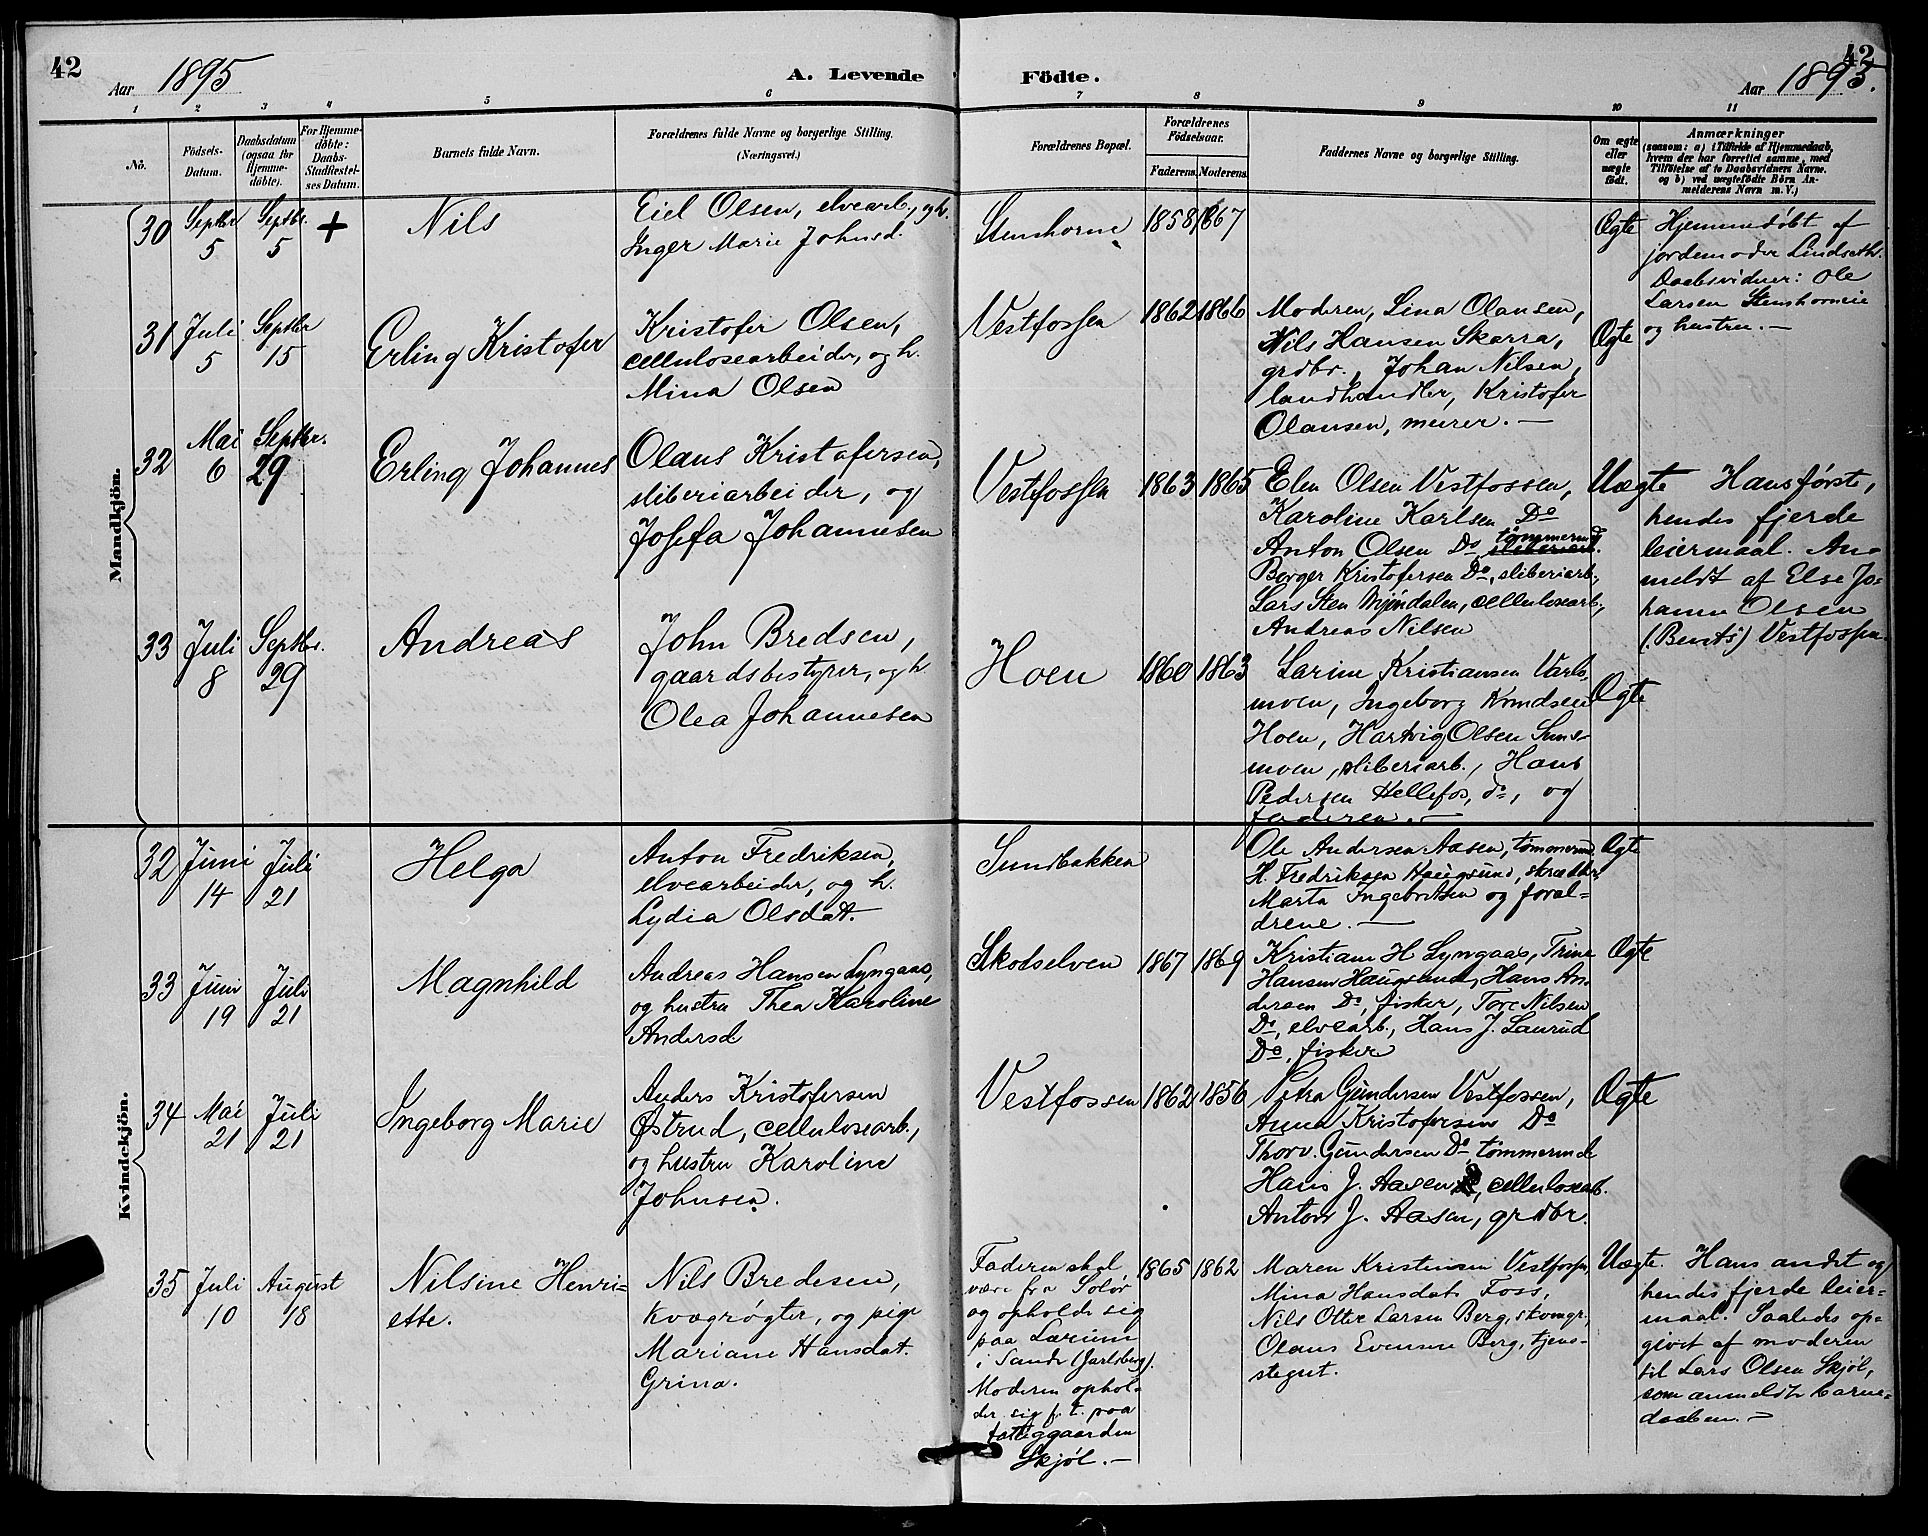 42
Aar 1895
A. Levende
Födte.
Aar 1895.
42
1 2 3 4 5 6 7 8 9 10 11
No.
Födsels-
Datum.
Daabsdatum
(ogsaa for
Hjemme-
döbte).
For Hjemme-
döbte:
Daabs-
Stadfæstel-
ses Datum.
Barnets fulde Navn.
Forældrenes fulde Navne og borgerlige Stilling.
(Næringsvei.)
Forældrenes Bopæl.
Forældrenes
Födselsaar.
Faderens. Moderens.
Faddernes Navne og borgerlige Stilling.
Om ægte
eller
uægte
födt.
Anmærkninger
(saasom: a) i Tilfælde af Hjemmedaab,
hvem der har forrettet samme, med
Tilföielse af to Daabsvidners Navne.
og b) ved uægtefödte Börn An-
melderens Navn m. V.)
Mandkjön.
30
Septbr
5
Septbr.
5
+
Nils
Eiel Olsen, elvearb., og h.
Inger Marie Johnsd.
Stenshorne
1858 1867
Ægte
Hjemmedøbt af
jordemoder Lindseth.
Daabsvidner: Ole
Larsen Stenshorneie
og hustru. —
31
Juli
5
Septbr
15
Erling Kristofer
Kristofer Olsen,
cellulosearbeider, og h.
Mina Olsen
Vestfossen
1862 1866
Moderen, Lina Olansen,
Nils Hansen Skarra,
grdbr., Johan Nilsen,
landhandler, Kristofer
Olansen, murer. —
Ægte
32
Mai
6
Septbr.
29
Erling Johannes
Olaus Kristofersen,
sliberiarbeider, og
Josefa Johannesen
Vestfossen
1863 1865
Elen Olsen Vestfossen,
Karoline Karlsen Do
Anton Olsen Do, tømmermd
sliberiarb.
Berger Kristofersen Do, sliberiarb.,
Lars Sten Mjøndalen, cellulosearb.,
Andreas Nilsen
Uægte
Hans første,
hendes fjerde
leiermaal. An-
meldt af Else Jo-
hanne Olsen
(Bents) Vestfossen
33
Juli
8
Septbr.
29
Andreas
John Bredsen,
gaardsbestyrer, og h.
Olea Johannesen
Hoen
1860 1863
Larine Kristiansen Varlo-
moen, Ingeborg Knudsen
Hoen, Hartvig Olsen Suns-
moen, sliberiarb., Hans
Pedersen Hellefos, do, og
faderen. —
Ægte
Kvindekjön.
32
Juni
14
Juli
21
Helga
Anton Fredriksen,
elvearbeider, og h.
Lydia Olsdat.
Sundbakken
Ole Andersen Aasen, tømmerm
H. Fredriksen Haugsund, skrædder
Marta Ingebretsen og foræl-
drene. —
Ægte
33
Juni
19
Juli
21
Magnhild
Andreas Hansen Lyngaas,
og hustru Thea Karoline
Andersd
Skotselven
1867 1869
Kristiane H Lyngaas, Trine
Hansen Haugsund, Hans An-
dersen Do, fisker, Tore Nilsen
Do, elvearb., Hans J. Laurud
Do, fisker
Ægte
34
Mai
21
Juli
21
Ingeborg Marie
Anders Kristofersen
Østrud, cellulosearb.,
og hustru Karoline
Johnsen.
Vestfossen
1862 1856
Petra Gundersen Vestfossen,
Anna Kristofersen Do
Thorv. Gundersen Do, tømmermd
Hans J. Aasen, cellulosearb.
Anton J. Aasen, grdbr.
Ægte
35
Juli
10
August
18
Nilsine Henri-
ette.
Nils Bredesen,
kvægrøgter, og pige
Mariane Hansdat.
Grina.
Faderen skal
være fra Solør
og opholde sig
paa Lærum
i Sande (Jarlsberg).
Moderen ophol-
der sig f. t. paa
fattiggaarden
Skjøl. —
1865 1862
Maren Kristensen Vestfossen,
Mina Hansdat. Foss,
Nils Otter Larsen Berg, skomgr.,
Olaus Evensen Berg, tjene-
stegut.
Uægte.
Hans andet og
hendes fjerde leier-
maal. Saaledes op-
givet af moderen
til Lars Olsen Skjøl,
som anmeldte barne-
daaben. —